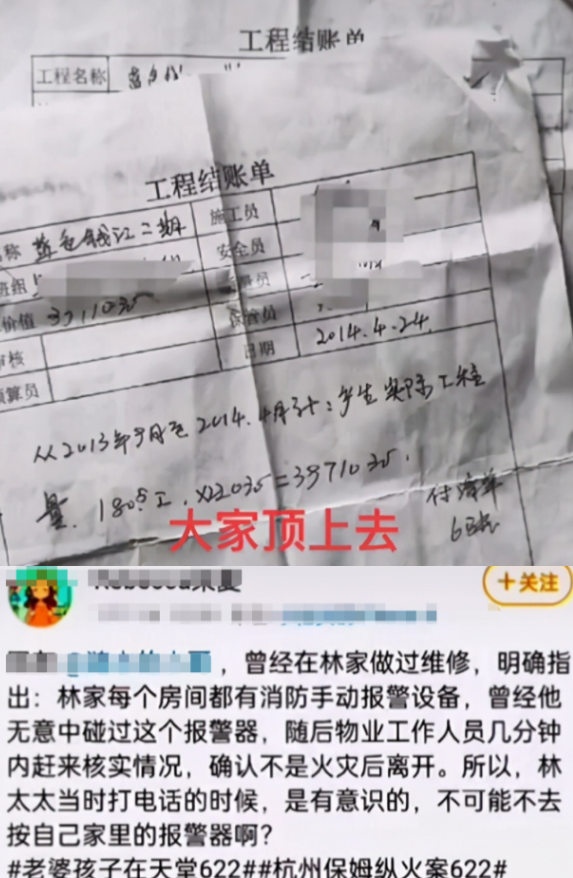 工程结账单
工程名称
工程结账单
称 蓝色钱江二期 施工员
班组 安全员
价值 员
审核 保管员
日期 2014.4.24
预算员
从2013年9月至2014.4月计:产生实际工程
量.
大家顶上去
付清单
+关注
,曾经在林家做过维修,明确指
出:林家每个房间都有消防手动报警设备,曾经他
无意中碰过这个报警器,随后物业工作人员几分钟
内赶来核实情况,确认不是火灾后离开。所以,林
太太当时打电话的时候,是有意识的,不可能不去
按自己家里的报警器啊?
#老婆孩子在天堂622##杭州保姆纵火案622#